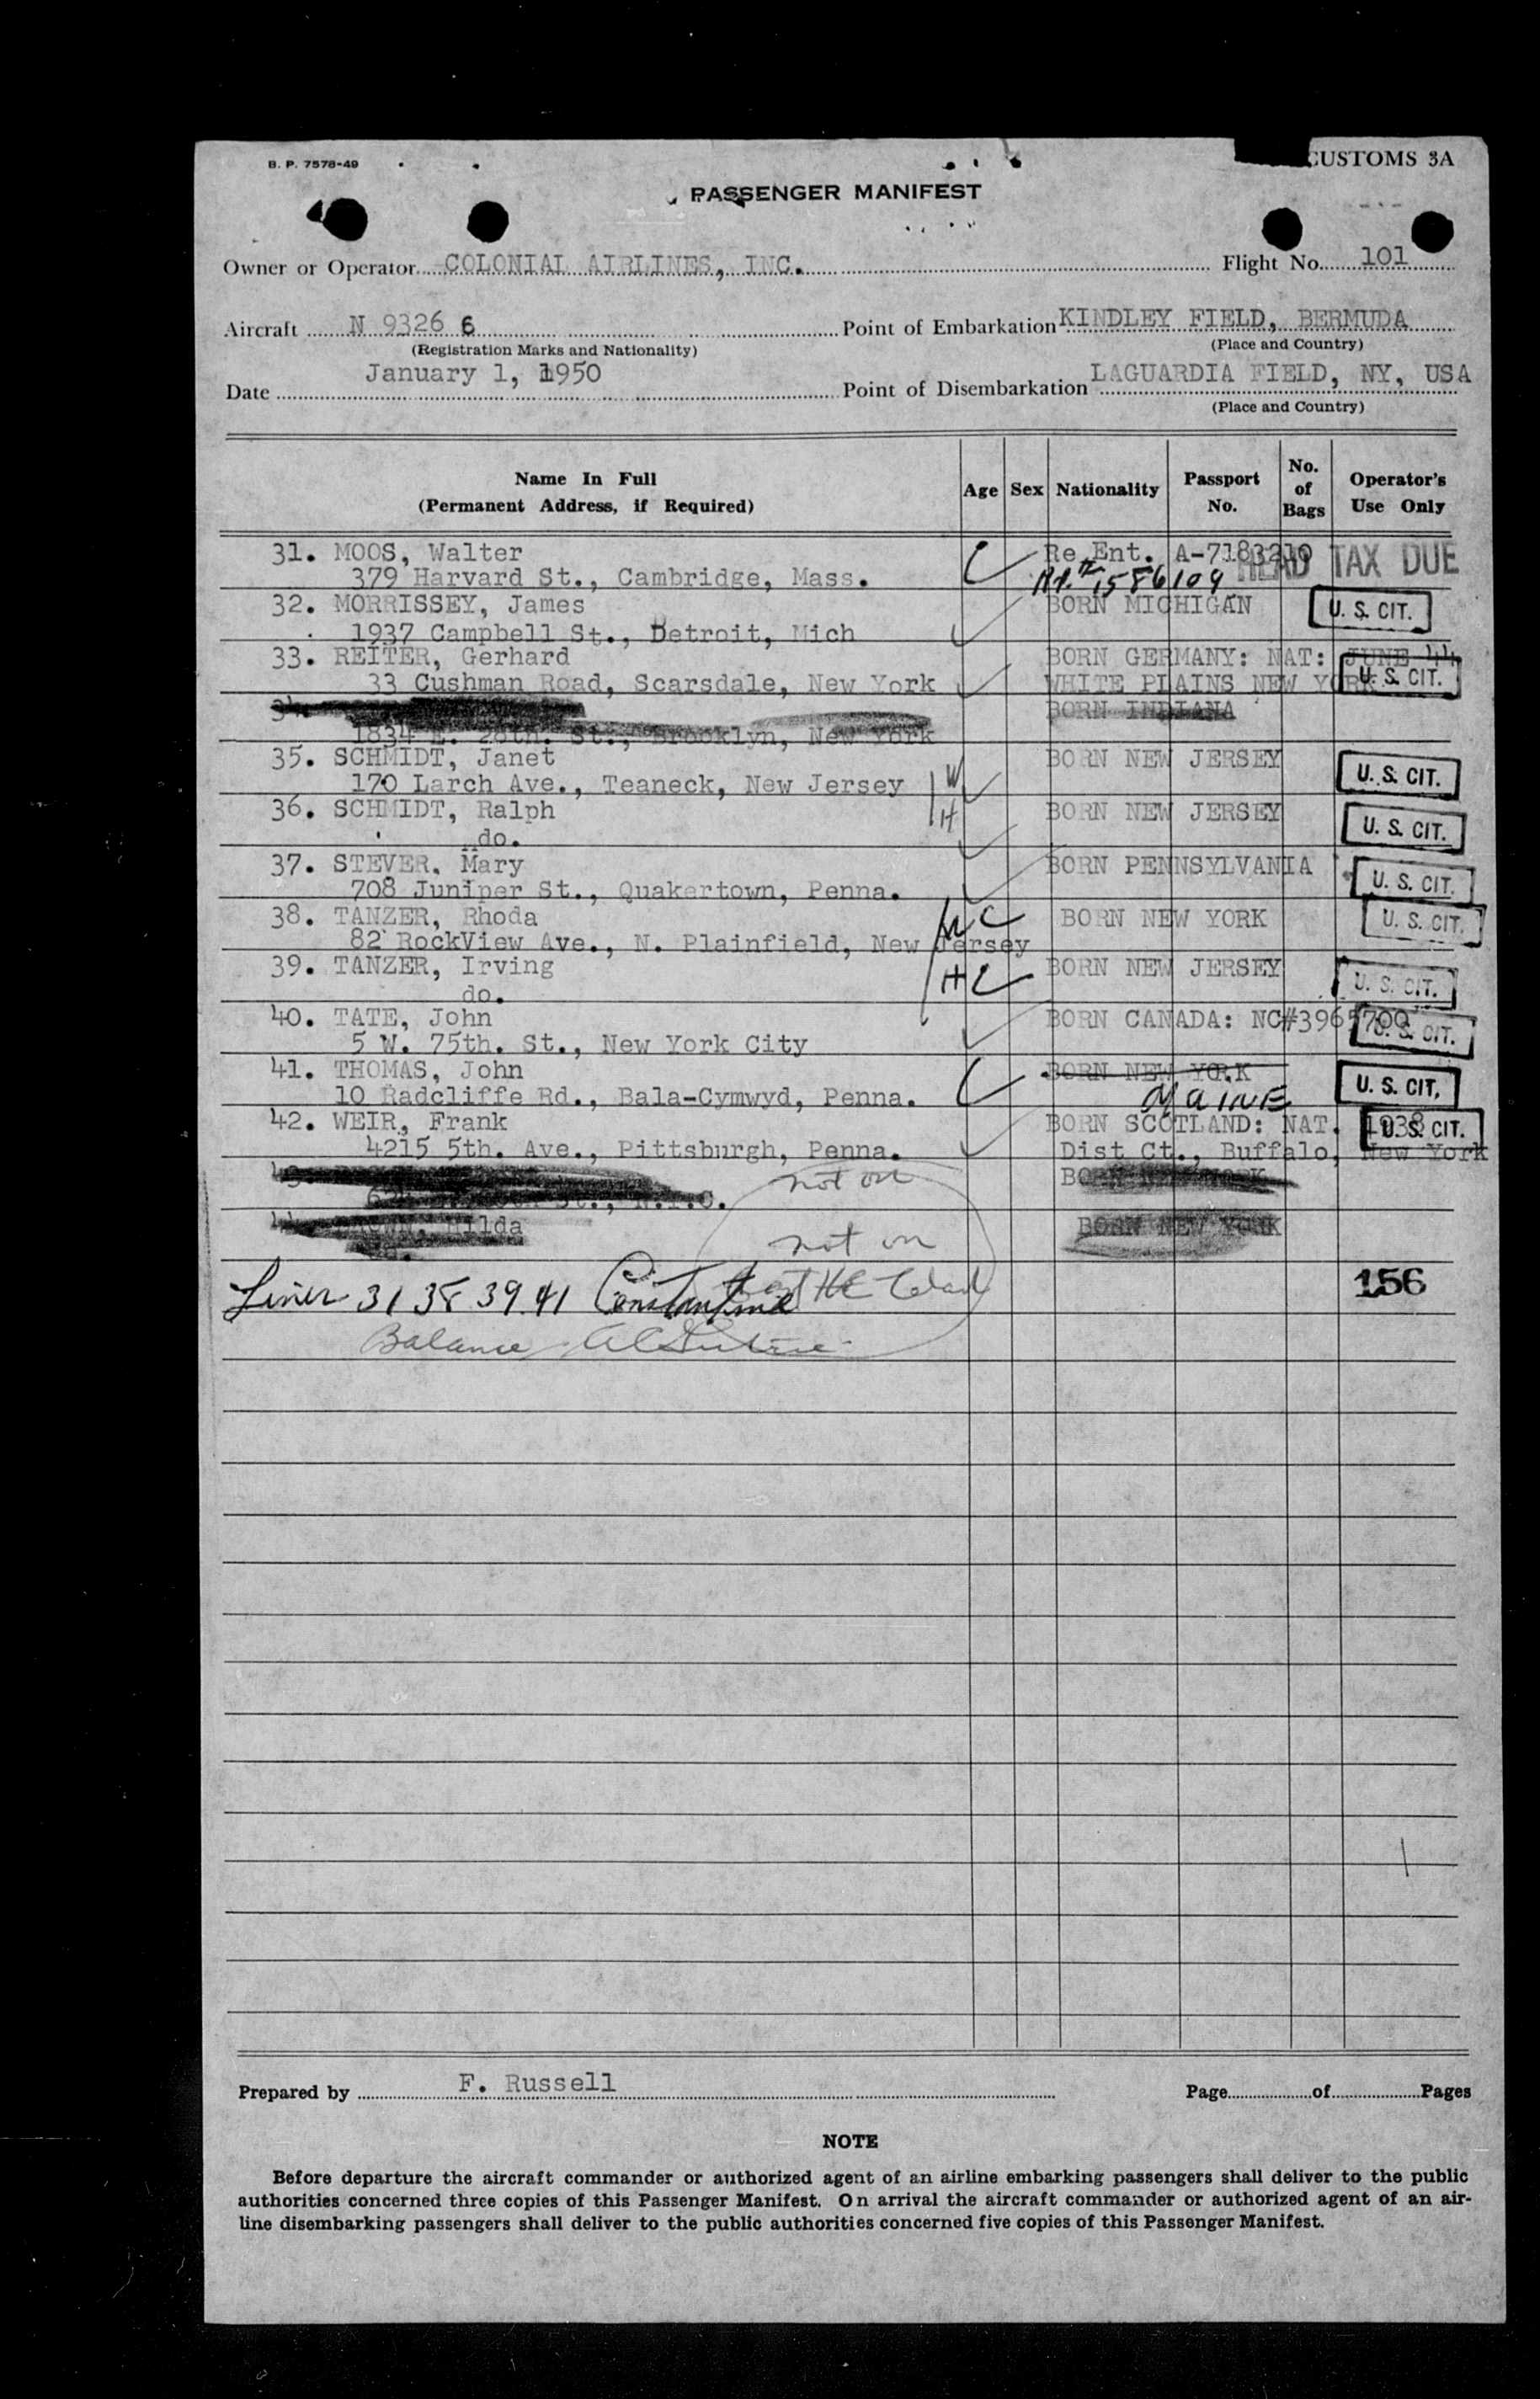 B. P. 7578-49
CUSTOMS 3A
PASSENGER MANIFEST
Owner or Operator COLONIAL AIRLINES, INC. Flight No. 101
Aircraft N 9326 6 Point of Embarkation KINDLEY FIELD, BERMUDA
(Registration Marks and Nationality) (Place and Country)
Date January 1, 1950 Point of Disembarkation LAGUARDIA FIELD, NY, USA
(Place and Country)
Name In Full (Permanent Address, if Required) Age Sex Nationality Passport No. No. of Bags Operator's Use Only
31. MOOS, Walter Re Ent. A-7183210 HEAD TAX DUE
379 Harvard St., Cambridge, Mass. 1586109
32. MORRISSEY, James BORN MICHIGAN U. S. CIT.
1937 Campbell St., Detroit, Mich
33. REITER, Gerhard BORN GERMANY: NAT: JUNE 44
33 Cushman Road, Scarsdale, New York WHITE PLAINS NEW YORK U. S. CIT.
34. BORN INDIANA
1834 E. St., Brooklyn, New York
35. SCHMIDT, Janet BORN NEW JERSEY U. S. CIT.
170 Larch Ave., Teaneck, New Jersey W
36. SCHMIDT, Ralph H BORN NEW JERSEY U. S. CIT.
do.
37. STEVER, Mary BORN PENNSYLVANIA U. S. CIT.
708 Juniper St., Quakertown, Penna.
38. TANZER, Rhoda W C BORN NEW YORK U. S. CIT.
82 RockView Ave., N. Plainfield, New Jersey
39. TANZER, Irving H C BORN NEW JERSEY U. S. CIT.
do.
40. TATE, John BORN CANADA: NC#3965700 U. S. CIT.
5 W. 75th. St., New York City
41. THOMAS, John BORN NEW YORK U. S. CIT.
10 Radcliffe Rd., Bala-Cymwyd, Penna. MAINE
42. WEIR, Frank BORN SCOTLAND: NAT. 1938 U. S. CIT.
4215 5th. Ave., Pittsburgh, Penna. Dist Ct., Buffalo, New York
not on
St., N.Y.C.
Hilda BORN NEW YORK
not on
Lines 31 38 39 41 Constantine 156
Balance
Prepared by F. Russell Page of Pages
NOTE
Before departure the aircraft commander or authorized agent of an airline embarking passengers shall deliver to the public
authorities concerned three copies of this Passenger Manifest. On arrival the aircraft commander or authorized agent of an air-
line disembarking passengers shall deliver to the public authorities concerned five copies of this Passenger Manifest.